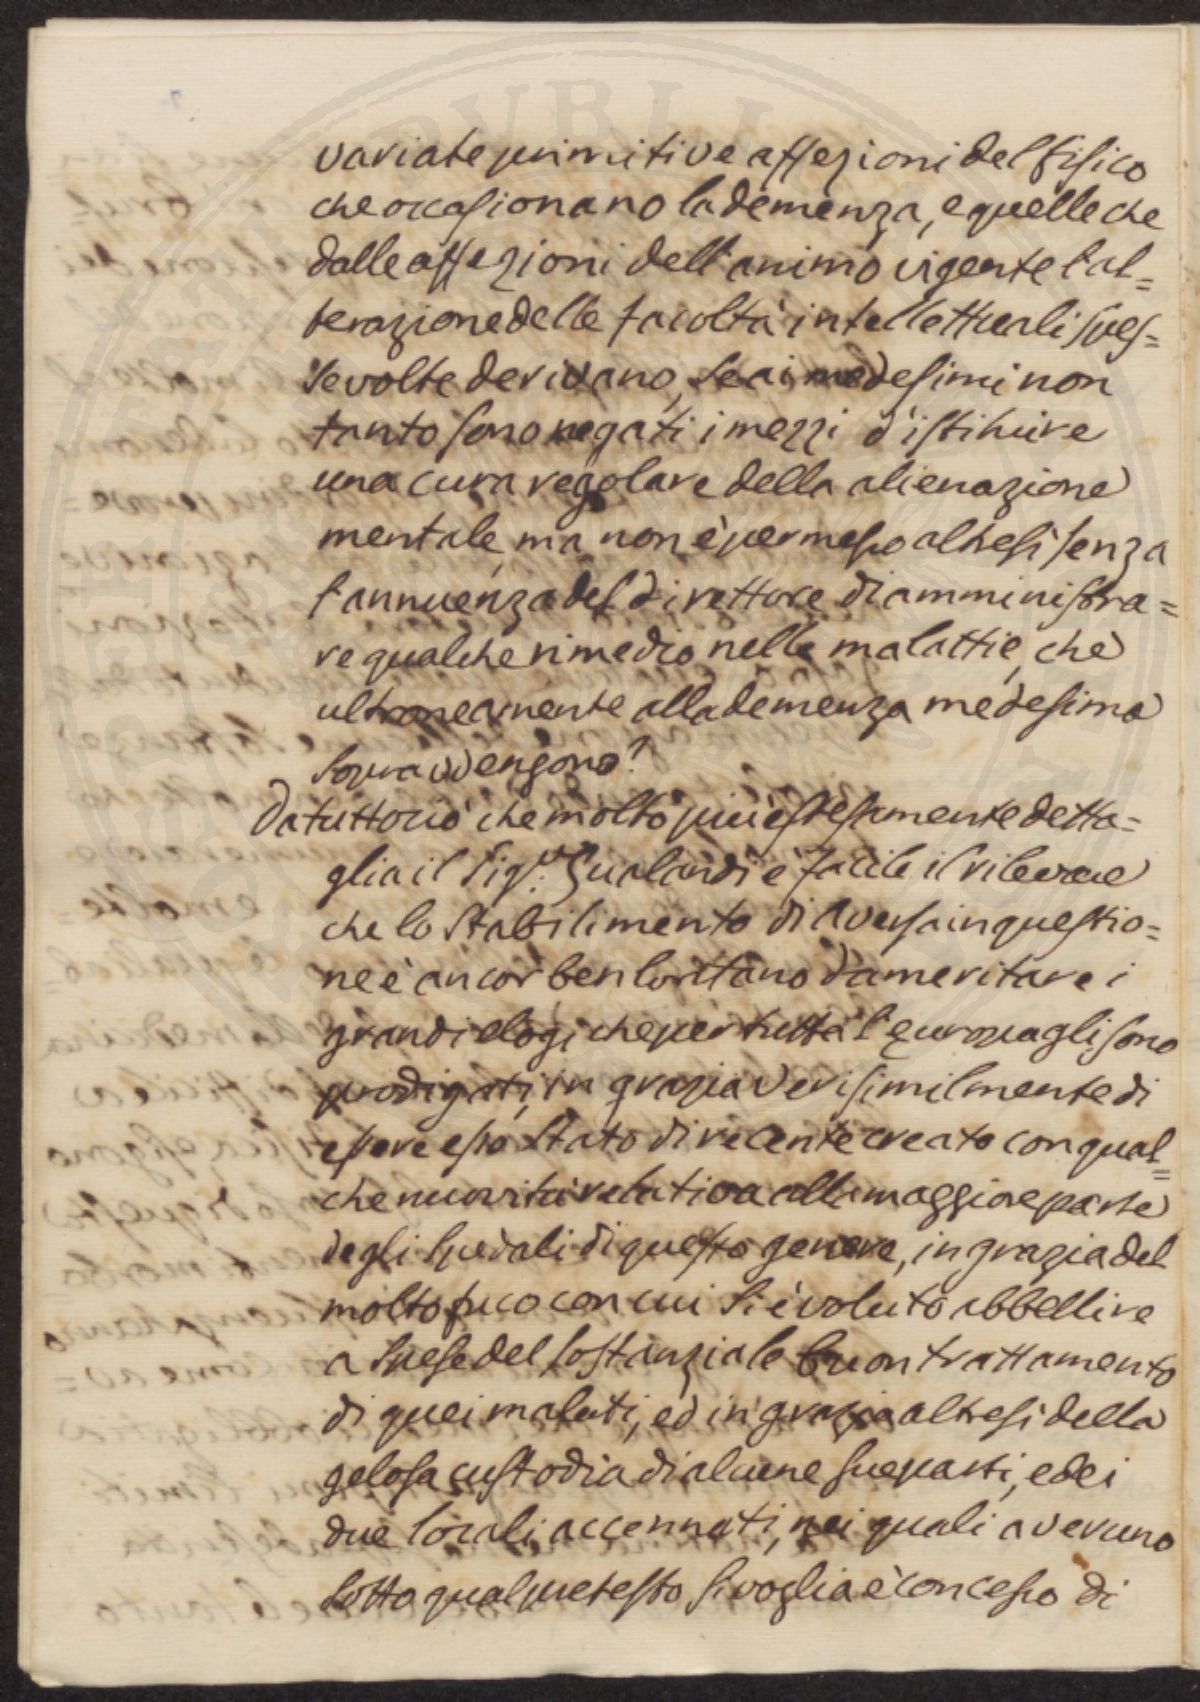 variate primitive affezioni del fisico
che occasionano la demenza, e quelle che
dalle affezioni dell'animo vigente l'al=
terazione delle facoltà intellettuali spes=
se volte derivano, se ai medesimi non
tanto sono negati i mezzi d'istituire
una cura regolare della alienazione
mentale, ma non è permesso altresì senza
l'annuenza del direttore di amministra=
re qualche rimedio nelle malattie, che
ultroneamente alla demenza medesima
sopravvengono?
Da tuttociò che molto più estesamente detta=
glia il Sig.r Gualandi è facile il rilevare
che lo Stabilimento di Aversa in questio=
ne è ancor ben lontano da meritare i
grandi elogi che per tutta l'Europa gli sono
prodigati, in grazia verisimilmente di
essere esso stato di recente creato con qual=
che nuovità relativa alla maggiore parte
degli Spedali di questo genere, in grazia del
molto fuco con cui si è voluto abbellire
a spese del sostanziale buon trattamento
di quei malati, ed in grazia altresì della
gelosa custodia di alcune sue parti, e dei
due locali accennati, nei quali a veruno
sotto qual pretesto si voglia è concesso di